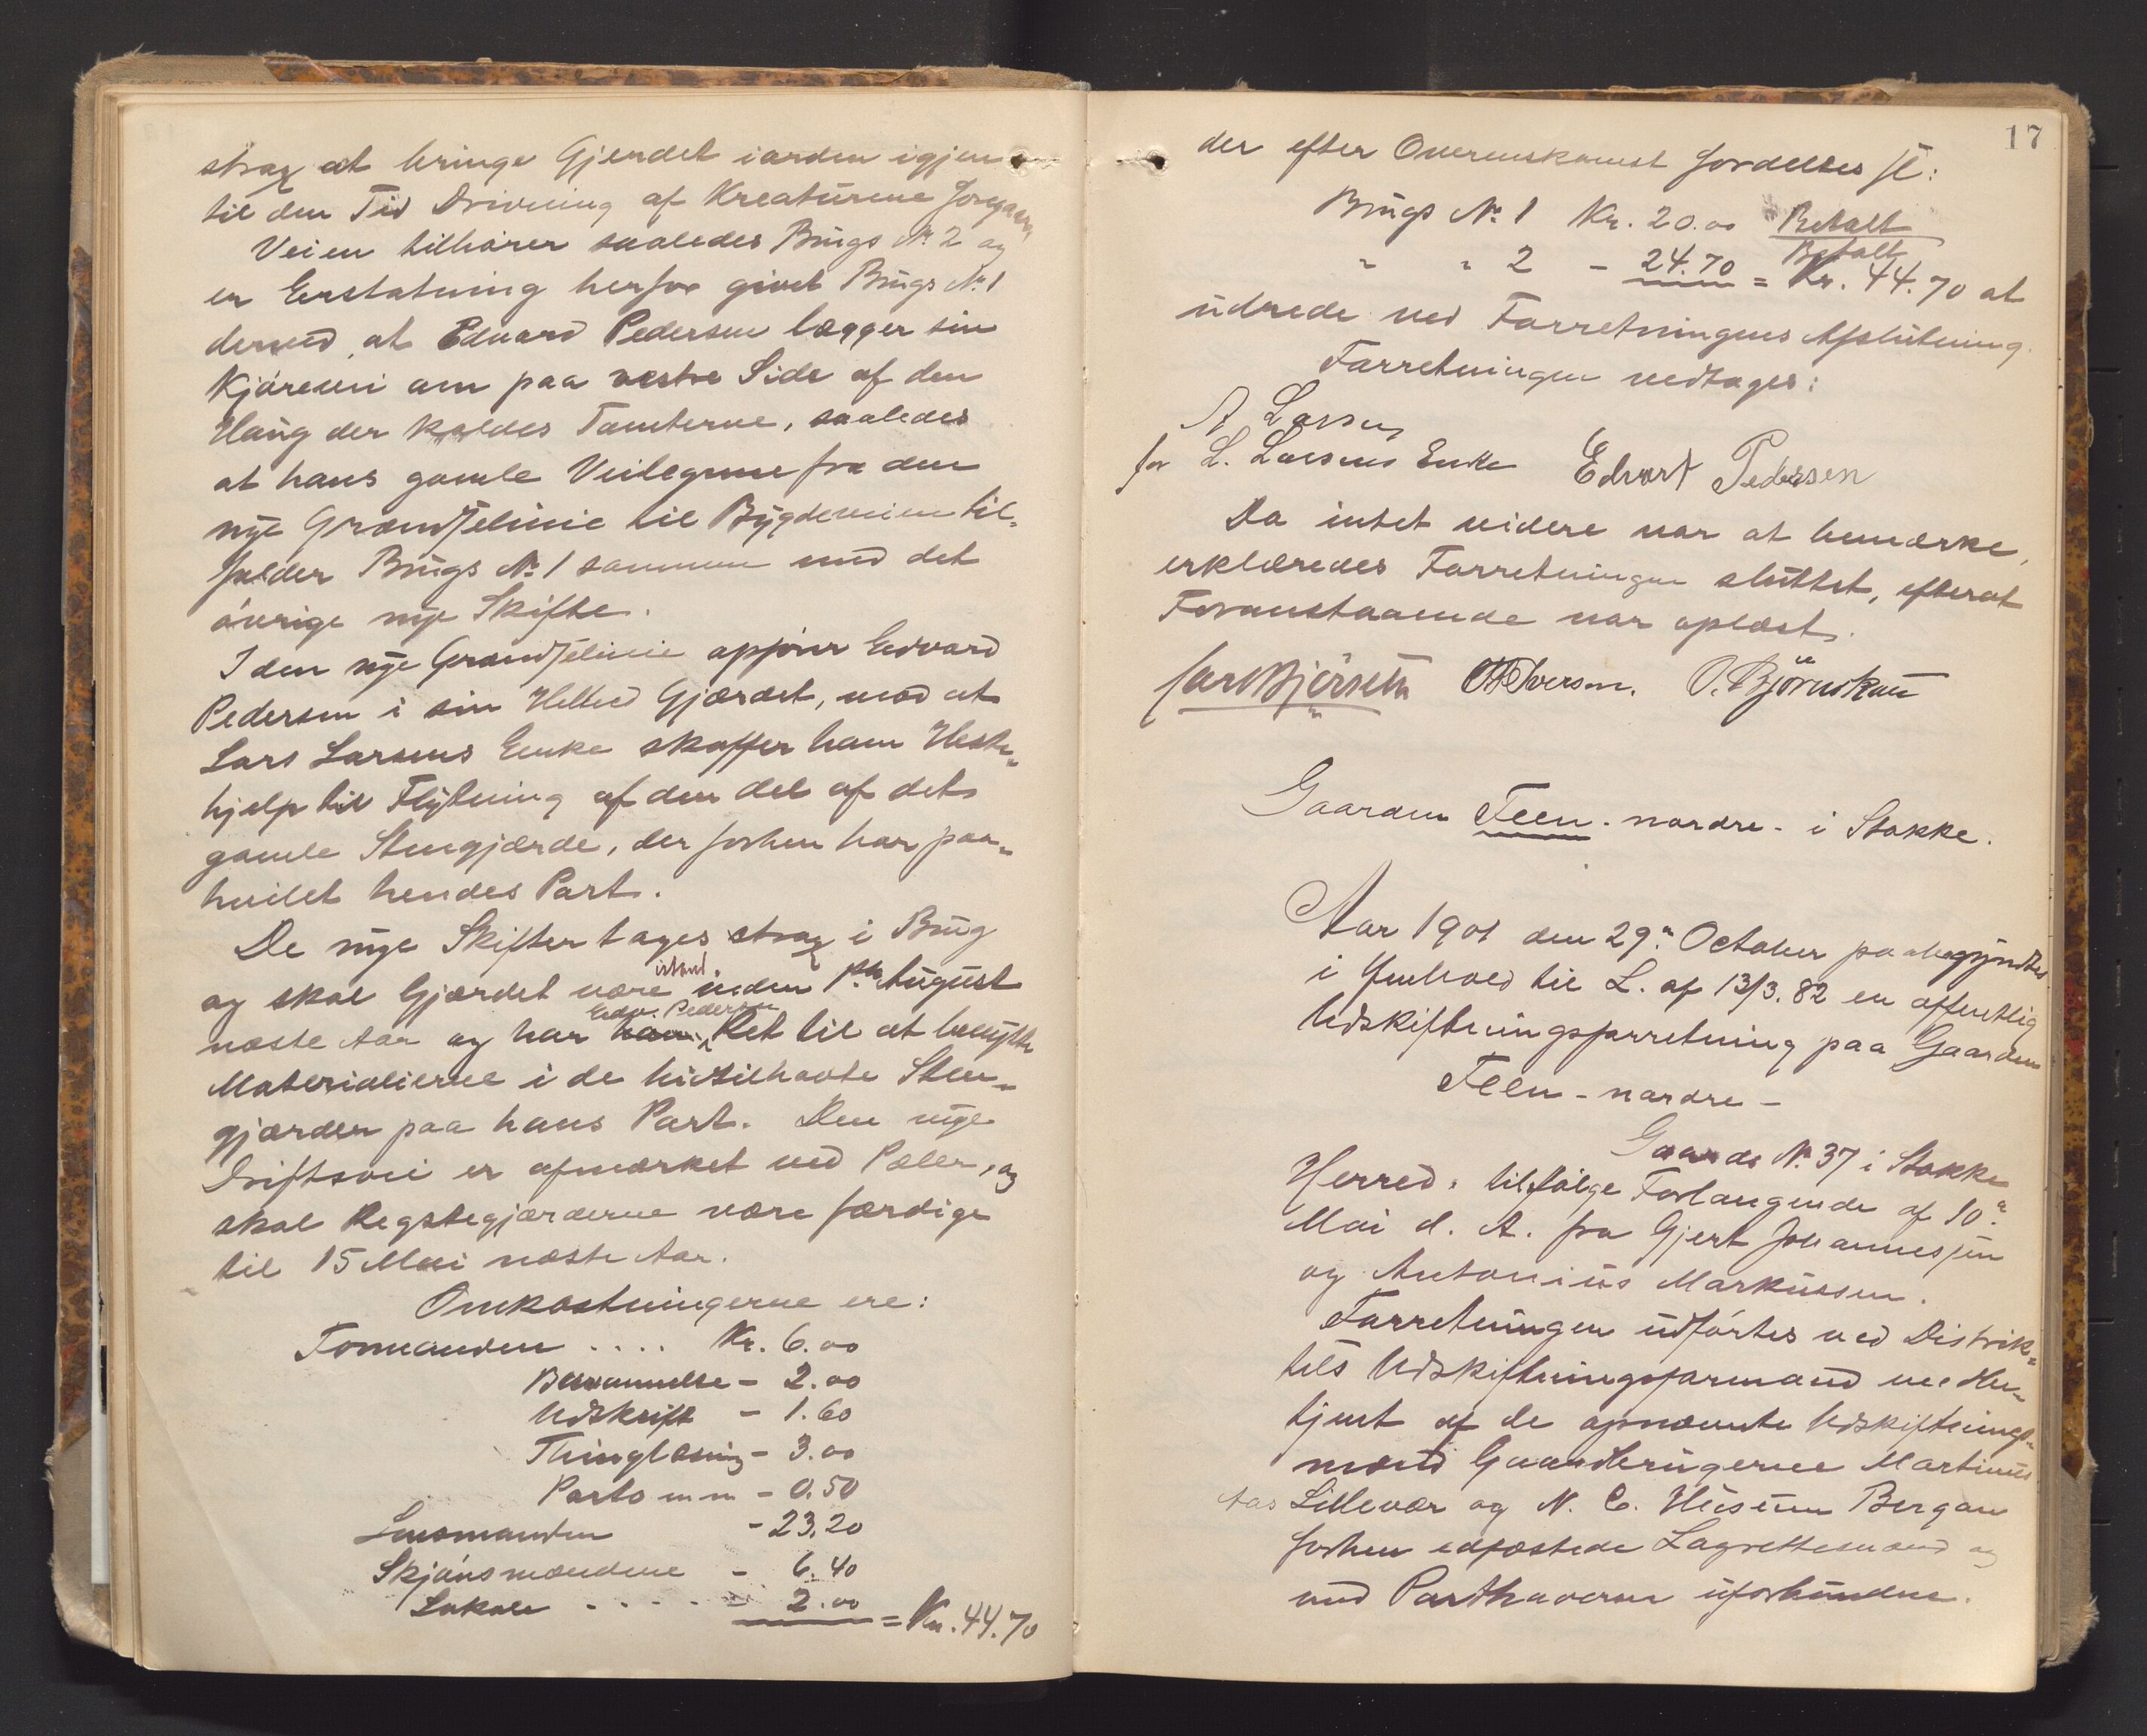 strax at bringe Gjerdet iorden igjen
til den Tid Drivning af Kreaturene foregaar.
Veien tilhører saaledes Brugs No 2 og
er Erstatning herfor givet Brugs No 1
derved at Edvard Pedersen lægger sin
Kjørevei om paa vestre Side af den
Haug der kaldes Tomterne, saaledes
at hans gamle Veilegeme fra den
nye Grændselinie til Bygdeveien til-
falder Brugs No 1 sammen med det
øvrige nye Skifte.
I den nye Grændselinie opfører Edvard
Pedersen i sin Helhed Gjærdet, mod at
Lars Larsens Enke skaffer ham Heste-
hjelp til Flytning af den del af det
gamle Stengjærde, der forhen har paa-
hvilet hendes Part.
De nye Skifter tages strax i Brug
og skal Gjærdet være istand inden 1ste August
næste Aar og har Edv. Pedersen Ret til at benytte
Materialierne i de hidtilhavte Sten-
gjærder paa hans Part. Den nye
Driftsvei er afmærket ved Pæler, og
skal Regstegjærderne være færdige
til 15 Mai næste Aar.
Omkostningerne ere:
Formanden .... Kr. 6.00
Berammelse - 2.00
Udskrift - 1.60
Thinglæsing - 3.00
Porto m.m - 0.50
Lensmanden - 23.20
Skjønsmændene - 6.40
Lokale .... - 2.00 = Kr. 44.70
17
der efter Overenskomst fordeltes sl:
Brugs No 1 Kr. 20.00 Betalt
" " 2 - 24.70 Betalt = Kr. 44.70 at
udrede ved Forretningens Afslutning.
Forretningen vedtages:
A Larsen
for L. Larsens Enke Edvart Pedersen
Da intet videre var at bemærke,
erklæredes Forretningen sluttet, efterat
Foranstaaende var oplæst.
O. Bjørnskau
Gaarden Feen - nordre - i Stokke.
Aar 1901 den 29n October paabegyndtes
i Henhold til L. af 13/3. 82 en offentlig
Udskiftningsforretning paa Gaarden
Feen - nordre -
Gaards No 37 i Stokke
Herred, tilfølge Forlangende af 10n
Mai d. A. fra Gjert Johannessen
og Antonius Markussen.
Forretningen udførtes ved Distrik-
tets Udskiftningsformand med Bi-
tjent af de opnævnte Udskiftnings-
mænd Gaardbrugerne Martinus
Aas Lillevar og N. C. Husum Bergan
forhen edfæstede Lagrettesmænd og
med Parthaverne uforbundne.